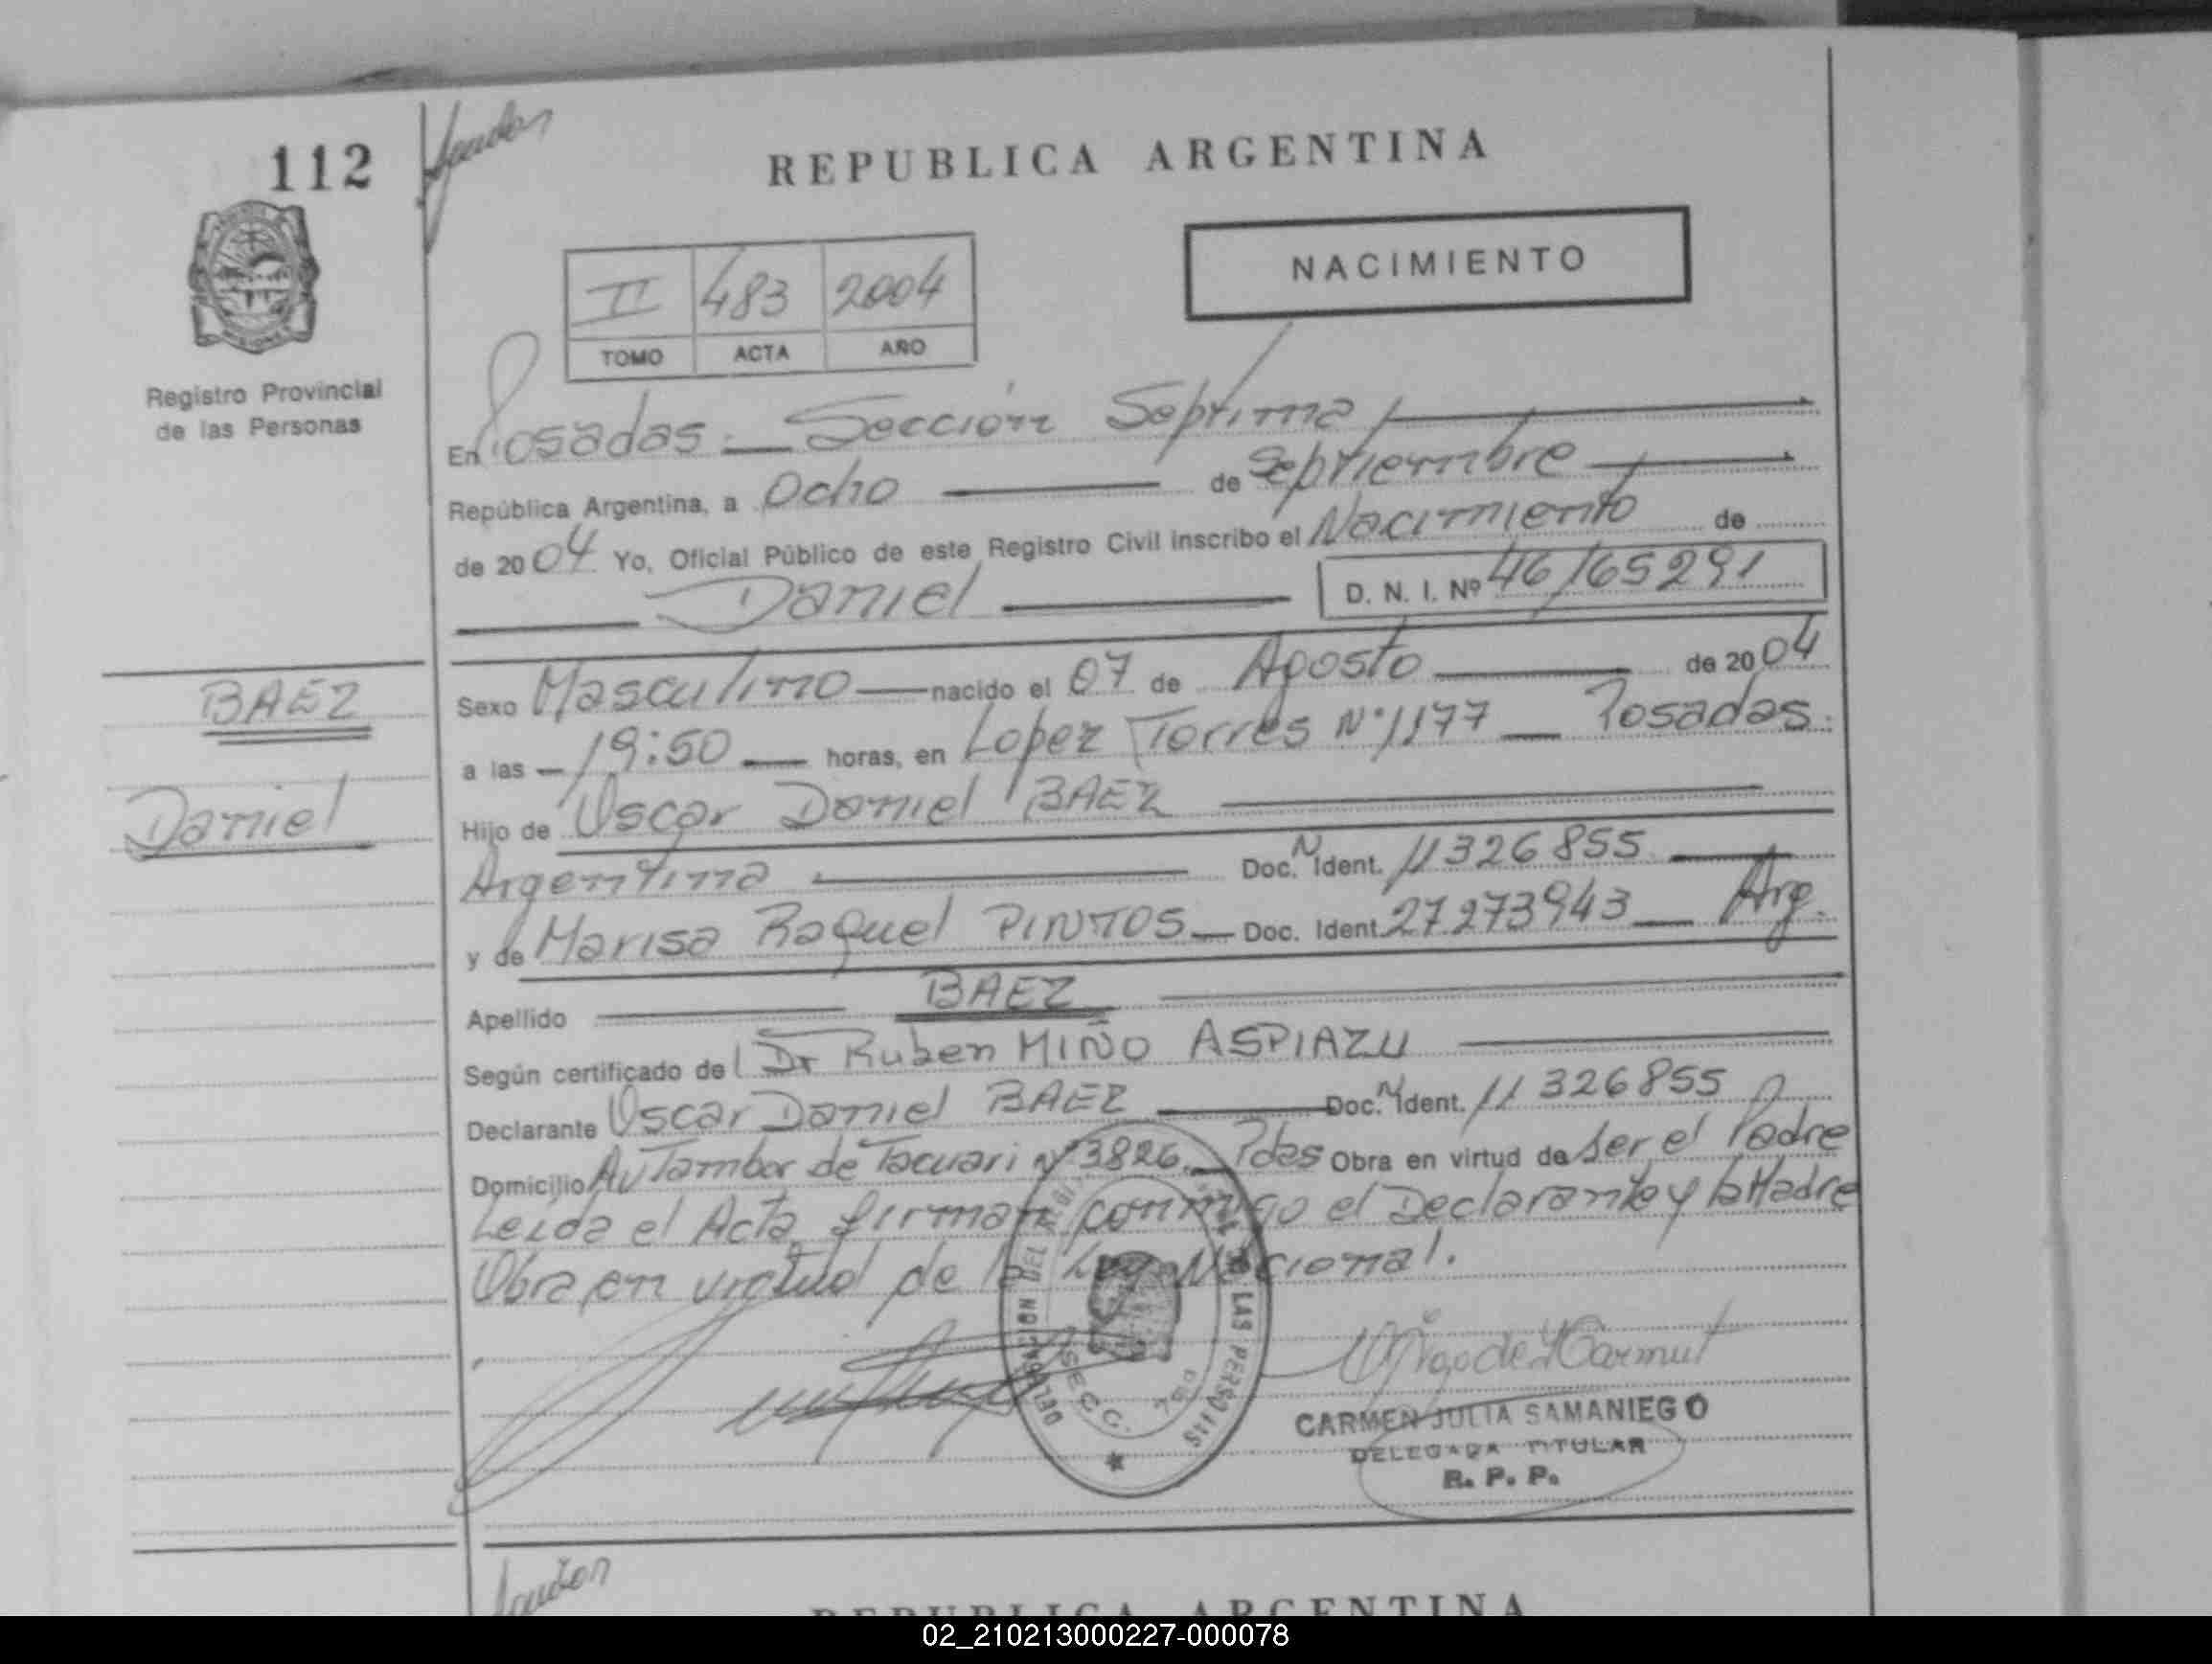 112
REPUBLICA ARGENTINA
NACIMIENTO
II 483 2004
TOMO ACTA AÑO
Registro Provincial
de las Personas
En Posadas - Sección Septima
República Argentina, a Ocho de Septiembre
de 2004 Yo, Oficial Público de este Registro Civil inscribo el Nacimiento de
Daniel D. N. I. Nº 46165291
BAEZ
Daniel
Sexo Masculino nacido el 07 de Agosto de 2004
a las 19:50 horas, en Lopez Torres Nº 1177 - Posadas.
Hijo de Oscar Daniel BAEZ
Argentina Doc. N Ident. 11326855
y de Marisa Raquel PINTOS - Doc. Ident. 27273943 - Arg.
Apellido BAEZ
Según certificado del Dr Ruben MIÑO ASPIAZU
Declarante Oscar Daniel BAEZ Doc. N Ident. 11326855
Domicilio Av Tambor de Tacuari Nº 3826 - Pdas Obra en virtud de ser el Padre
Leída el Acta, firman conmigo el Declarante y la Madre
Obra en virtud de la Ley Nacional.
DELEGACION DEL REGISTRO DE LAS PERSONAS
SECC. 7
CARMEN JULIA SAMANIEGO
DELEGADA TITULAR
R. P. P.
REPUBLICA ARGENTINA
02_210213000227-000078